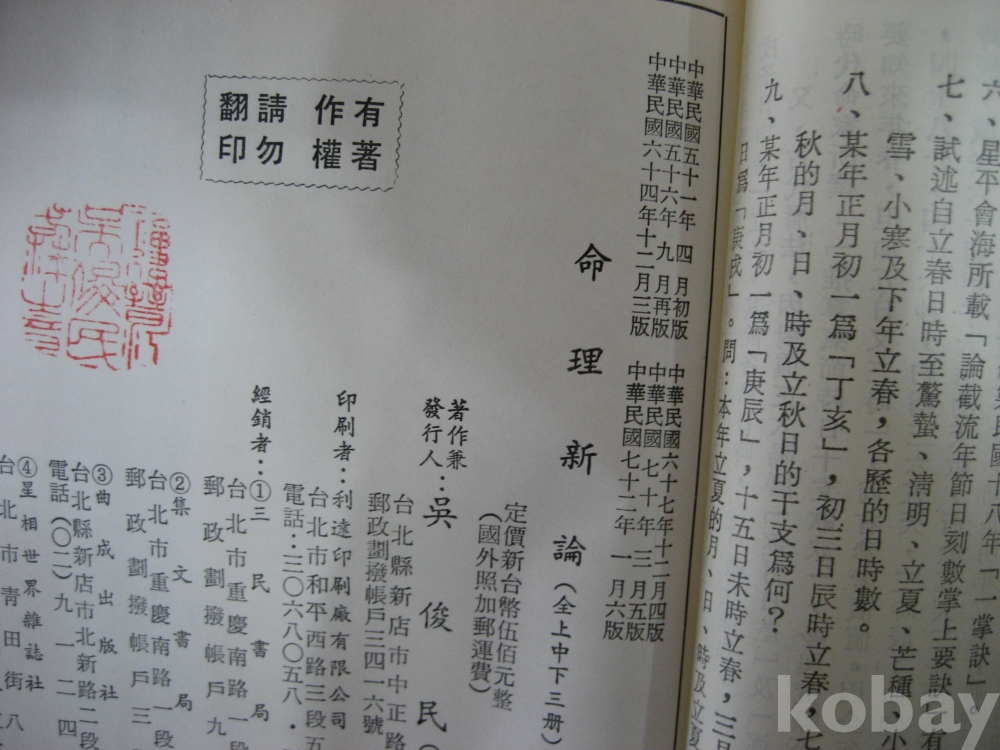 六、星平會海所載「論截流年節日刻數掌上要訣」有
七、試述自立春日時至驚蟄、清明、立夏、芒種、小
雪、小寒及下年立春，各歷的日時數。
八、某年正月初一為「丁亥」，初三日辰時立春，七
秋的月、日、時及立秋日的干支為何？
九、某年正月初一為「庚辰」，十五日未時立春，三月
日為「庚戌」。問：本年立夏的月、日、時及立夏
中華民國五十一年 四 月初版
中華民國五十六年 九 月再版
中華民國六十四年十二月三版
中華民國六十七年十二月四版
中華民國 七十年 三 月五版
中華民國七十二年 一 月六版
命理新論（全上中下三册）
定價新台幣伍佰元整
（國外照加郵運費）
著作兼
發行人：吳俊民（
台北縣新店市中正路
郵政劃撥帳戶三四一六號
印刷者：利達印刷廠有限公司
台北市和平西路三段五
電話：三〇六八〇五八．
經銷者：①三民書局
台北市重慶南路一
郵政劃撥帳戶九
②集文書局
台北市重慶南路一段
郵政劃撥帳戶三
③曲成出版社
台北縣新店市北新路二段
電話（〇二）九一二四
④星相世界雜誌社
台北市青田街八
有著
作權
請勿
翻印
kobay